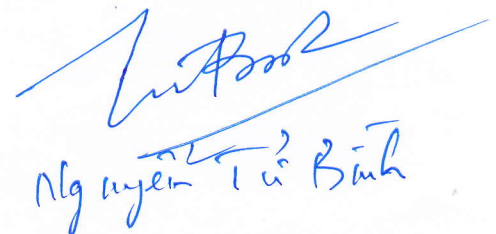 Nguyễn Tử Bình